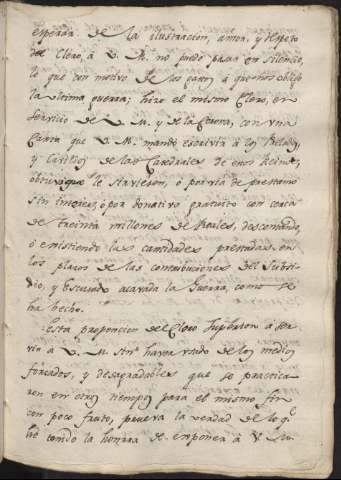 esperar de la ilustracion, amor, y respeto
del Clero, à V. M. no puedo pasar en silencio,
lo que con motivo de los gastos à que nos obligó
la ultima guerra; hizo el mismo Clero, en
servicio de V. M. y de la Corona, con una
Carta que V. M. mandó escrivir à los Prelados,
y Cavildos de las Catedrales de estos Reinos,
que le sirviesen, ó por via de prestamo
sin interes, ó por donativo gratuito con cerca
de treinta millones de Reales, descontando,
ó emistiendo las cantidades prestadas en
los plazos de las contribuciones del Subsi-
dio, y Escusado acavada la Guerra, como se
ha hecho.
Esta proporcion del Clero Superior à ser-
vir à V. M. sin haver usado de los medios
forzados, y desagradables que se practica-
ron en otros tiempos para el mismo fin
con poco fruto, prueva la verdad de lo q.
hé tenido la honrra de exponer à V. M.